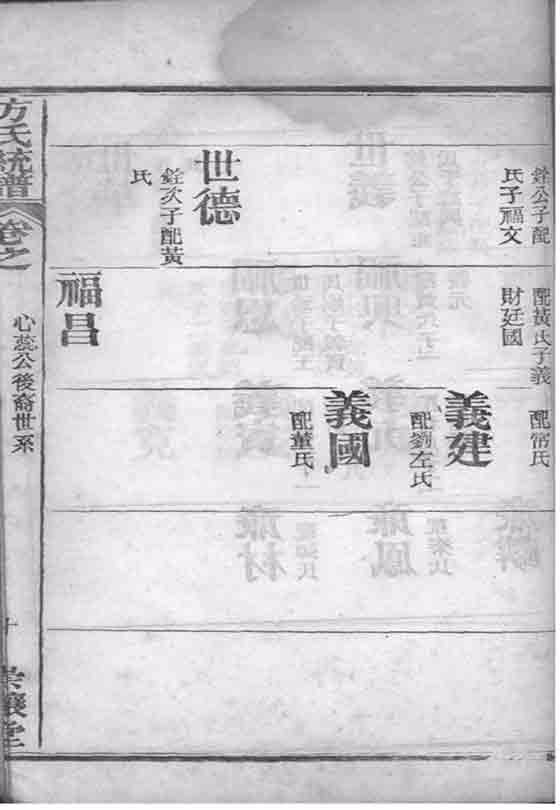 銓公子配
氏子福文
世德
銓次子配黃
氏
配黃氏子義
財廷國
福昌
配常氏
義建
配劉左氏
義國
配董氏
方氏統譜
卷之
心蕊公後裔世系
十